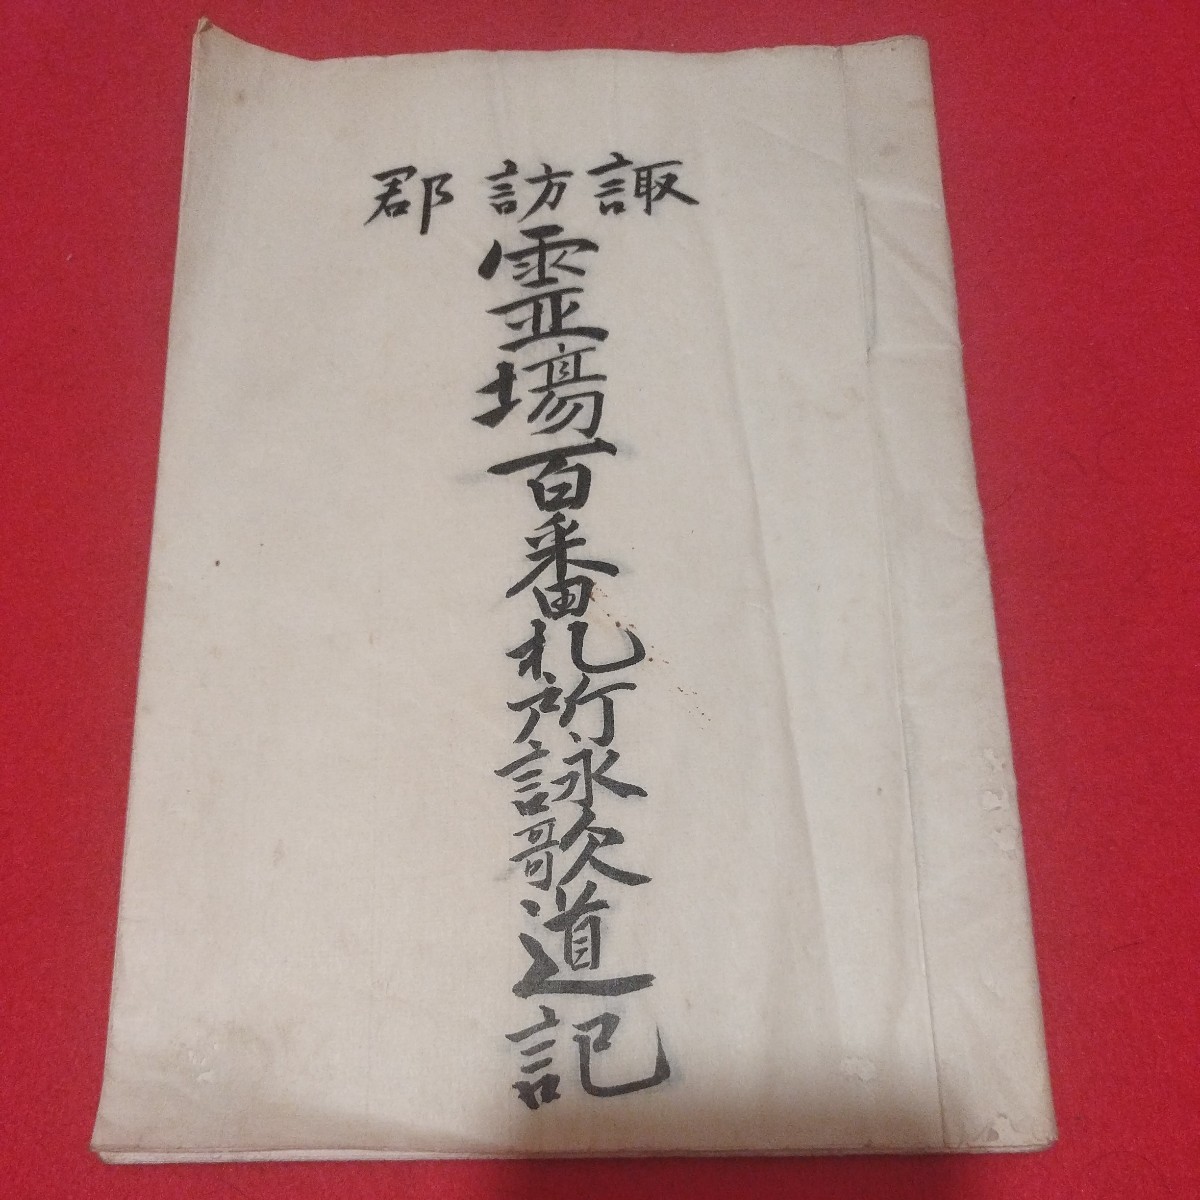 諏訪郡
霊場百番札所詠歌道記